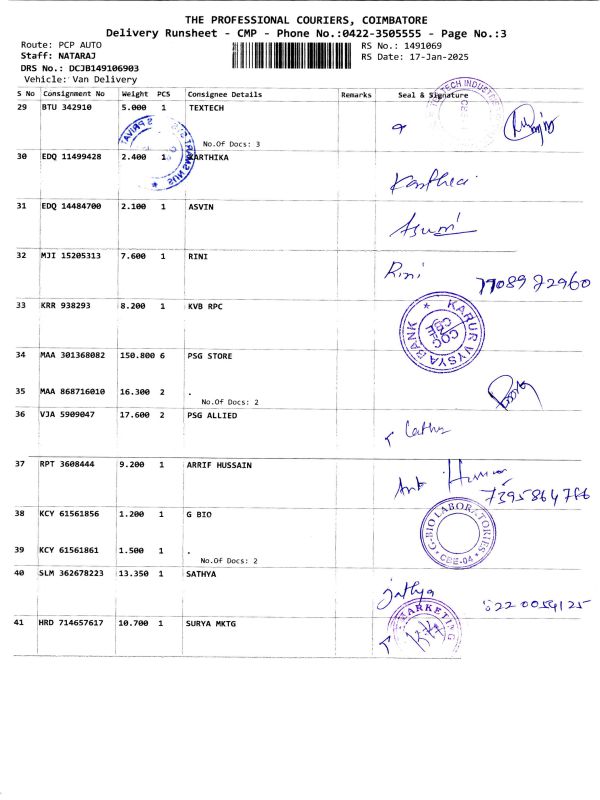 THE PROFESSIONAL COURIERS, COIMBATORE
Delivery Runsheet - CMP - Phone No.:0422-3505555 - Page No.:3
Route: PCP AUTO RS No.: 1491069
Staff: NATARAJ RS Date: 17-Jan-2025
DRS No.: DCJB149106903
Vehicle: Van Delivery
S No Consignment No Weight PCS Consignee Details Remarks Seal & Signature
29 BTU 342910 5.000 1 TEXTECH
No.Of Docs: 3
30 EDQ 11499428 2.400 1 KARTHIKA
Karthika
31 EDQ 14484700 2.100 1 ASVIN
Asvin
32 MJI 15205313 7.600 1 RINI
Rini
7708972960
33 KRR 938293 8.200 1 KVB RPC
KARUR VYSYA BANK
34 MAA 301368082 150.800 6 PSG STORE
35 MAA 868716010 16.300 2 .
No.Of Docs: 2
36 VJA 5909047 17.600 2 PSG ALLIED
37 RPT 3608444 9.200 1 ARRIF HUSSAIN
7395864766
38 KCY 61561856 1.200 1 G BIO
G-BIO LABORATORIES
CBE-04
39 KCY 61561861 1.500 1 .
No.Of Docs: 2
40 SLM 362678223 13.350 1 SATHYA
Sathya
41 HRD 714657617 10.700 1 SURYA MKTG
MARKETING